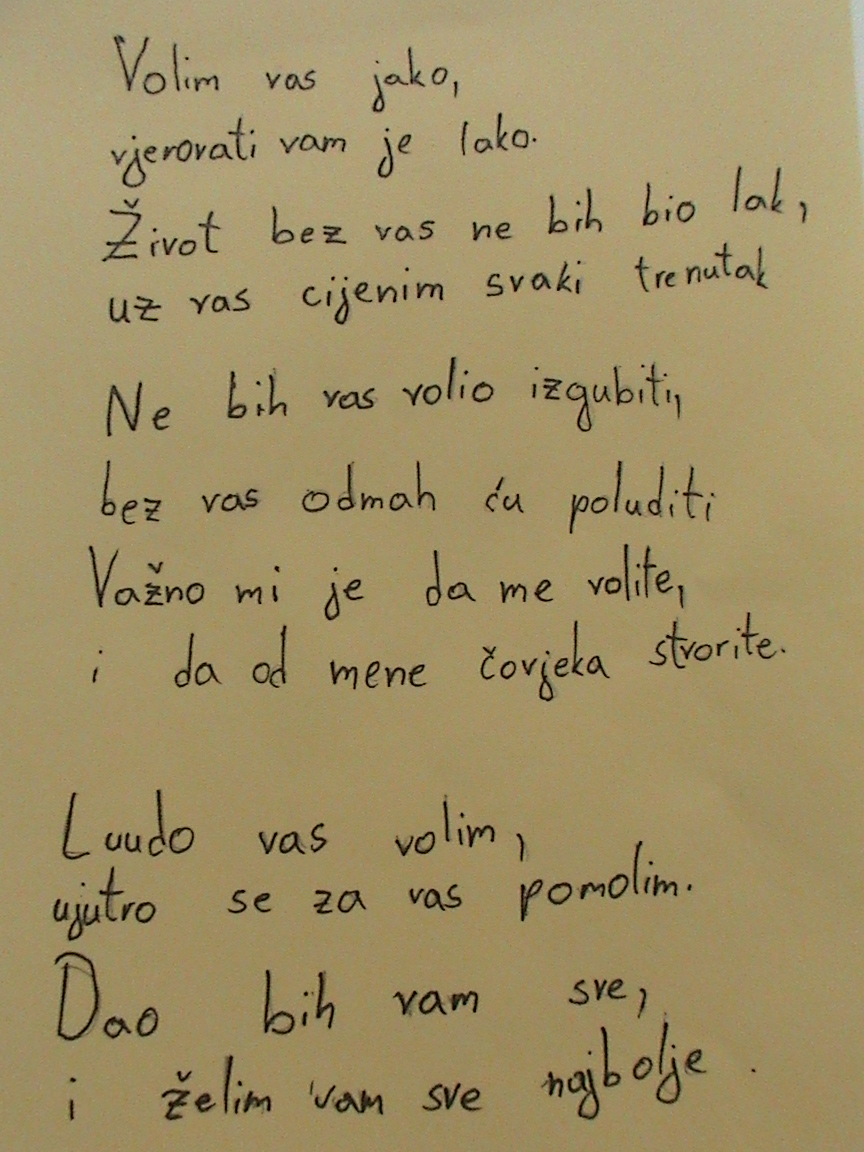 Volim vas jako,
vjerovati vam je lako.
Život bez vas ne bih bio lak,
uz vas cijenim svaki trenutak
Ne bih vas volio izgubiti,
bez vas odmah ću poluditi
Važno mi je da me volite,
i da od mene čovjeka stvorite.
Luudo vas volim,
ujutro se za vas pomolim.
Dao bih vam sve,
i želim vam sve najbolje.